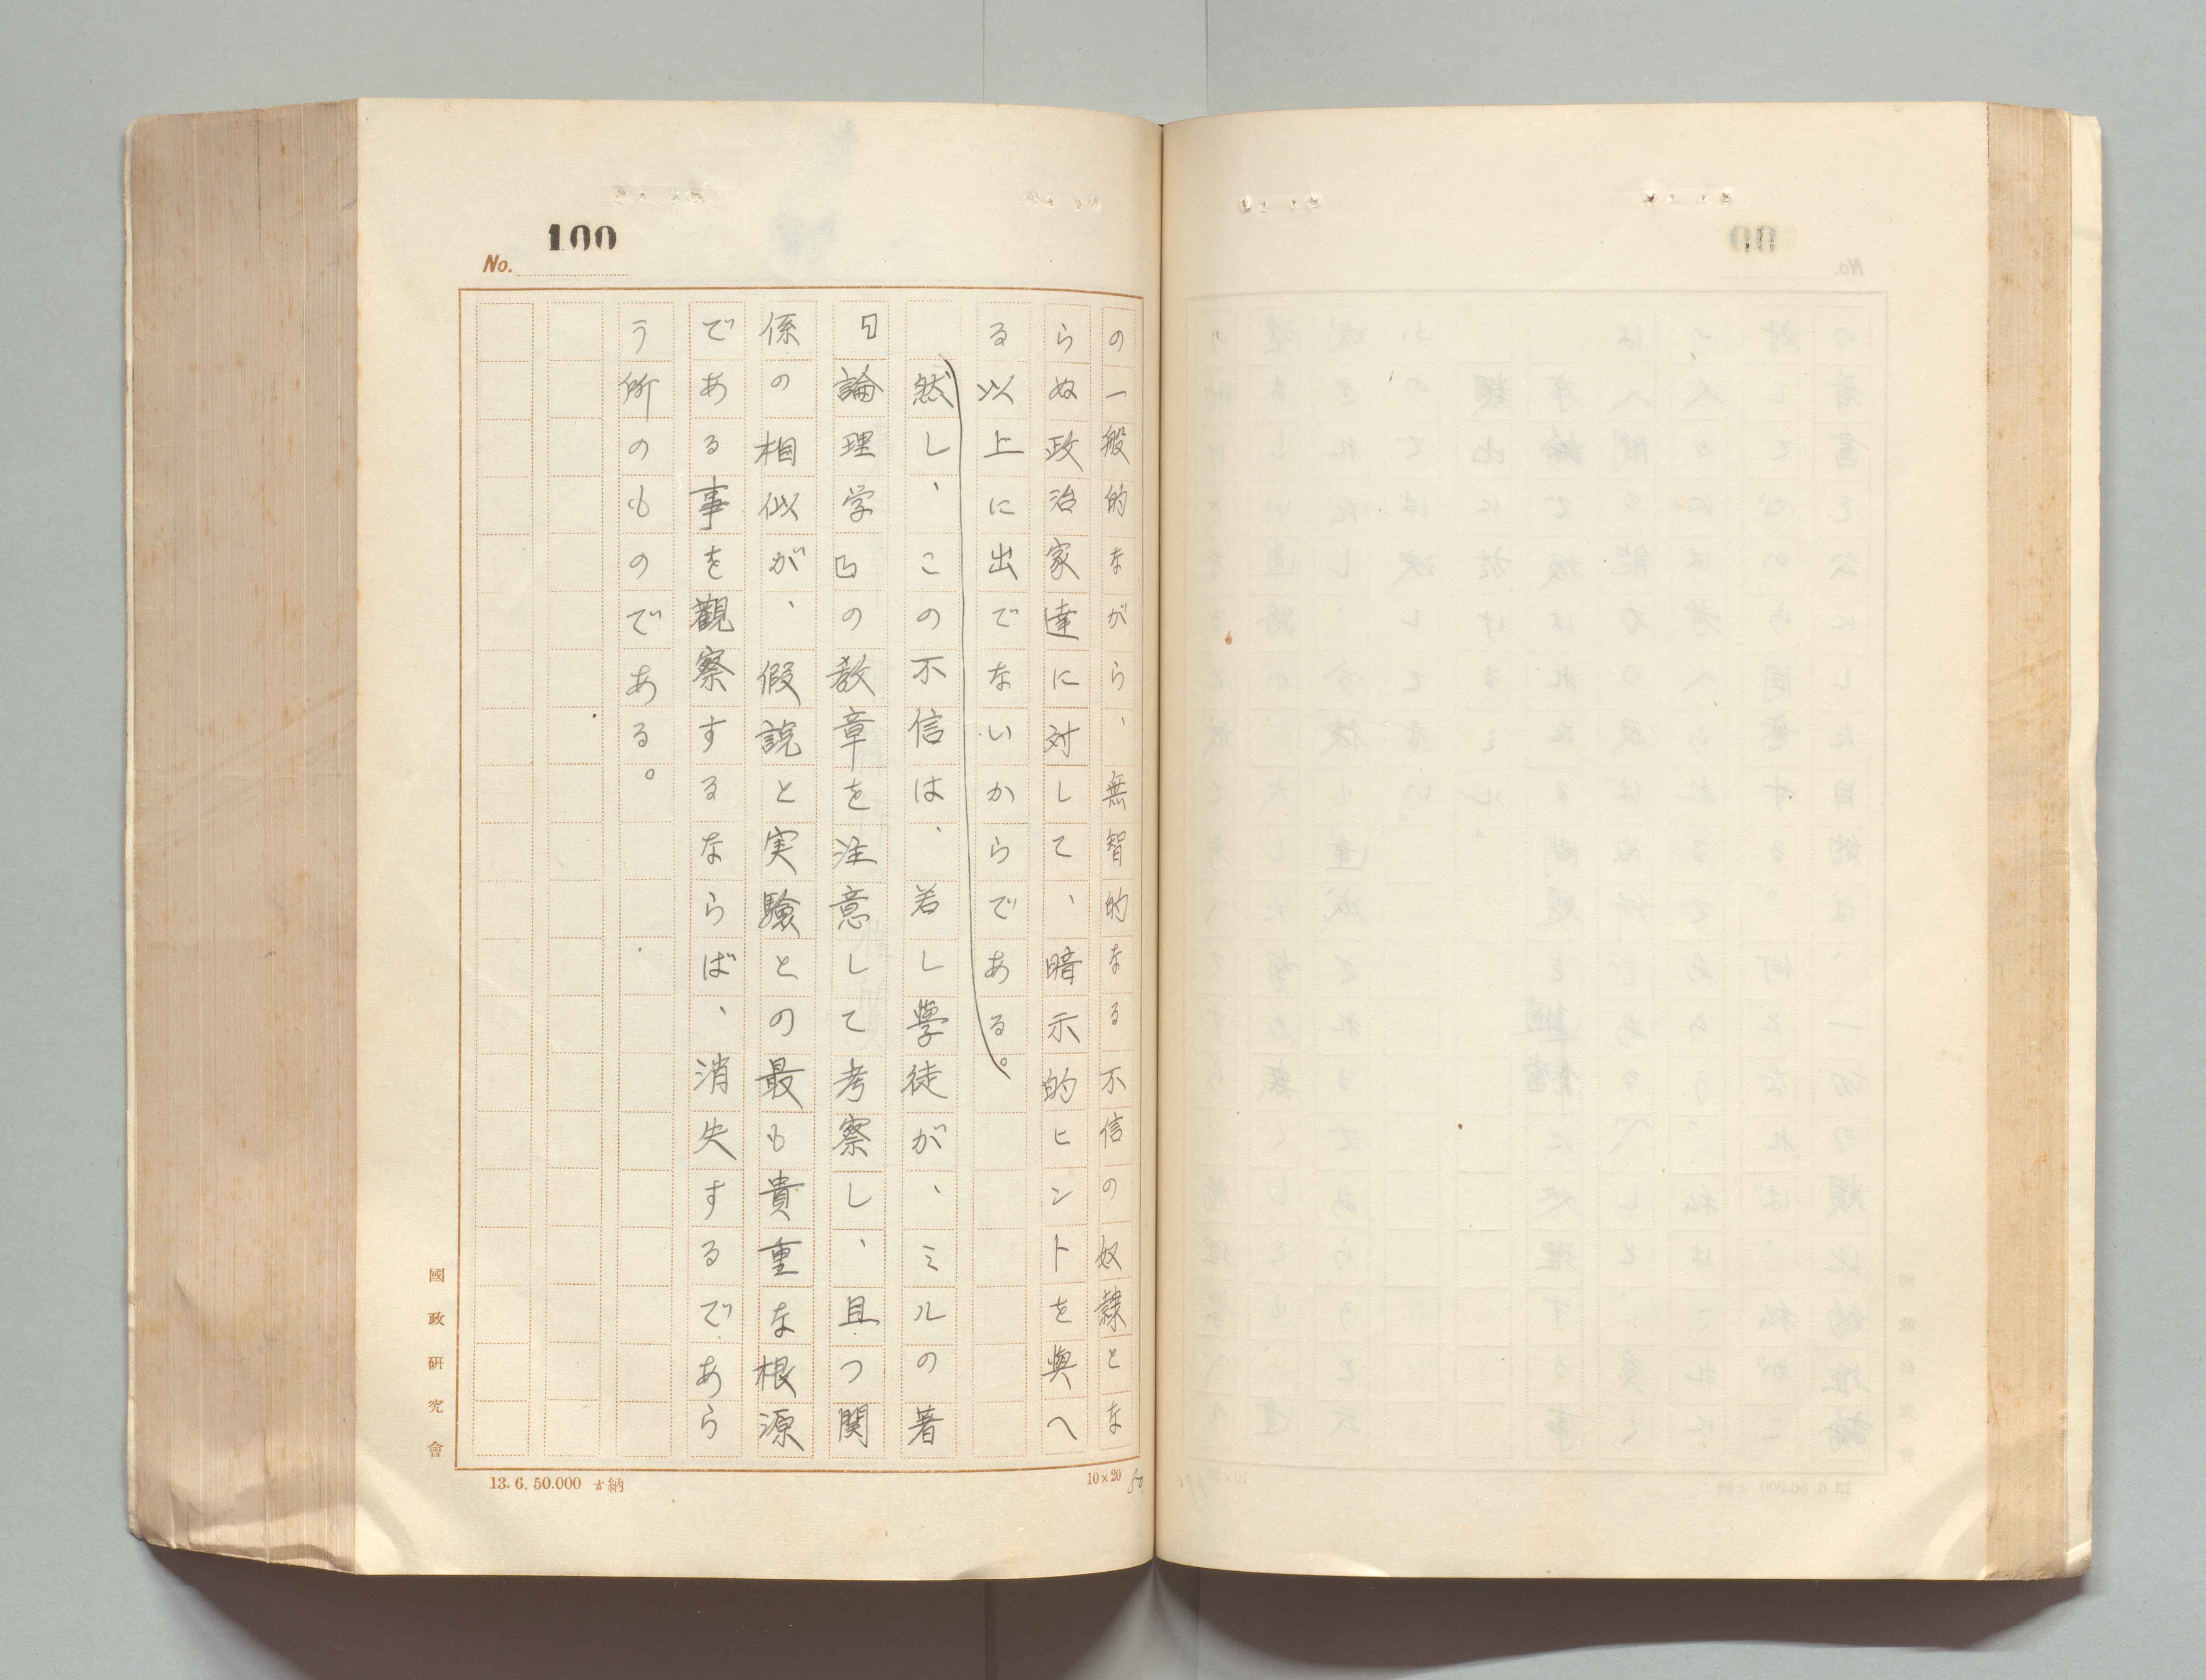 No. 100
の一般的ながら、無智的なる不信の奴隷とな
らぬ政治家達に対して、暗示的ヒントを與へ
る以上に出でないからである。
然し、この不信は、若し學徒が、ミルの著
『論理学』の教章を注意して考察し、且つ関
係の相似が、假説と実験との最も貴重な根源
である事を觀察するならば、消失するであら
う所のものである。
國政研究會
13. 6. 50.000 納
10×20
50.